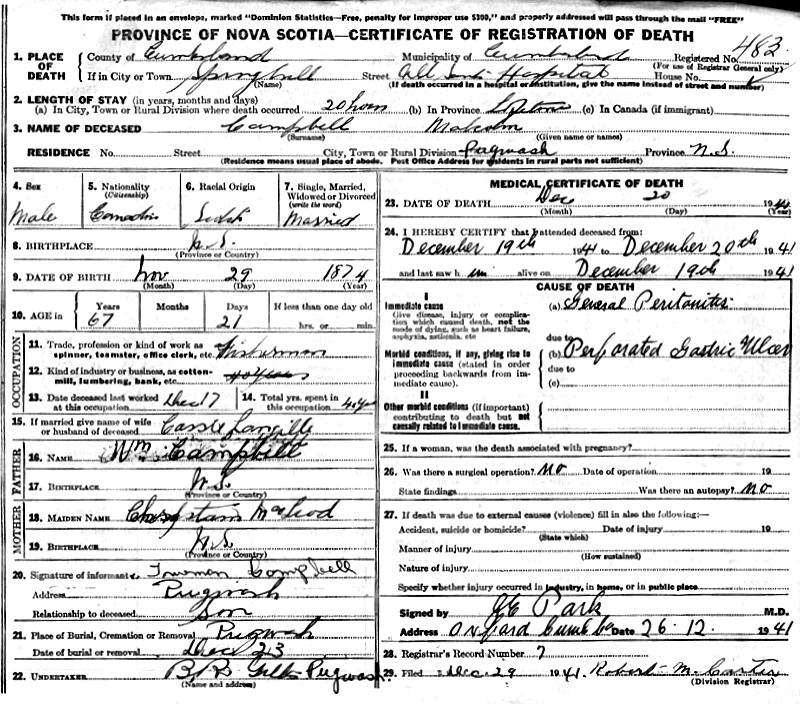 This form if placed in an envelope, marked "Dominion Statistics—Free, penalty for improper use $300," and properly addressed will pass through the mail "FREE"
PROVINCE OF NOVA SCOTIA—CERTIFICATE OF REGISTRATION OF DEATH
1. PLACE OF DEATH County of Cumberland Municipality of Cumberland Registered No. 483
(For use of Registrar General only)
If in City or Town Springhill Street All Saints Hospital House No.
(Name) (If death occurred in a hospital or institution, give the name instead of street and number)
2. LENGTH OF STAY (in years, months and days)
(a) In City, Town or Rural Division where death occurred 20 hours (b) In Province Lifetime (c) In Canada (if immigrant)
3. NAME OF DECEASED Campbell Malcolm
(Surname) (Given name or names)
RESIDENCE No. Street City, Town or Rural Division Pugwash Province N.S.
(Residence means usual place of abode. Post Office Address for residents in rural parts not sufficient)
4. Sex Male
5. Nationality (Citizenship) Canadian
6. Racial Origin
7. Single, Married, Widowed or Divorced (write the word) Married
8. BIRTHPLACE N.S.
(Province or Country)
9. DATE OF BIRTH Nov 29 1874
(Month) (Day) (Year)
10. AGE in Years 67 Months Days 21 If less than one day old hrs. or min.
OCCUPATION
11. Trade, profession or kind of work as spinner, teamster, office clerk, etc. Fisherman
12. Kind of industry or business, as cotton-mill, lumbering, bank, etc. 40 years
13. Date deceased last worked at this occupation Dec 17
14. Total yrs. spent in this occupation 40 yrs
15. If married give name of wife or husband of deceased Langille
FATHER
16. NAME Wm Campbell
17. BIRTHPLACE N.S.
(Province or Country)
MOTHER
18. MAIDEN NAME McLeod
19. BIRTHPLACE N.S.
(Province or Country)
20. Signature of informant Trueman Campbell
Address Pugwash
Relationship to deceased Son
21. Place of Burial, Cremation or Removal Pugwash
Date of burial or removal Dec 23
22. UNDERTAKER Pugwash
(Name and address)
MEDICAL CERTIFICATE OF DEATH
23. DATE OF DEATH Dec 20 1941
(Month) (Day) (Year)
24. I HEREBY CERTIFY that I attended deceased from:
December 19th 1941 to December 20th 1941
and last saw him alive on December 19th 1941
CAUSE OF DEATH
I
Immediate cause (a) General Peritonitis
Give disease, injury or complication which caused death, not the mode of dying, such as heart failure, asphyxia, asthenia, etc
due to
Morbid conditions, if any, giving rise to immediate cause (stated in order proceeding backwards from immediate cause). (b) Perforated Gastric Ulcer
due to
(c)
II
Other morbid conditions (if important) contributing to death but not causally related to immediate cause.
25. If a woman, was the death associated with pregnancy?
26. Was there a surgical operation? No Date of operation 19
State findings Was there an autopsy? No
27. If death was due to external causes (violence) fill in also the following:—
Accident, suicide or homicide? Date of injury 19
(State which)
Manner of injury
(How sustained)
Nature of injury
Specify whether injury occurred in industry, in home, or in public place
Signed by Park M.D.
Address Oxford Date 26-12 1941
28. Registrar's Record Number 7
29. Filed Dec. 29 1941 Robert M.
(Division Registrar)